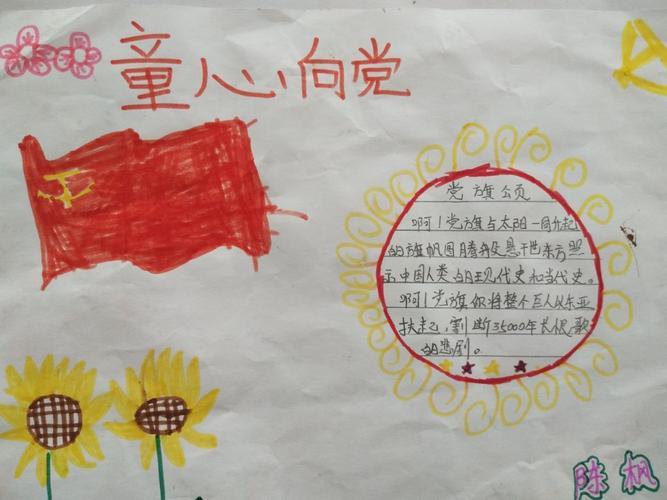 童心向党
党旗颂
啊！党旗与太阳一同升起
的旗帆图腾般悬于世东方照
示中国人类的现代史和当代史。
啊！党旗你将整个巨人从东亚
扶起，割断35000年长恨歌
的悲剧。
陈枫